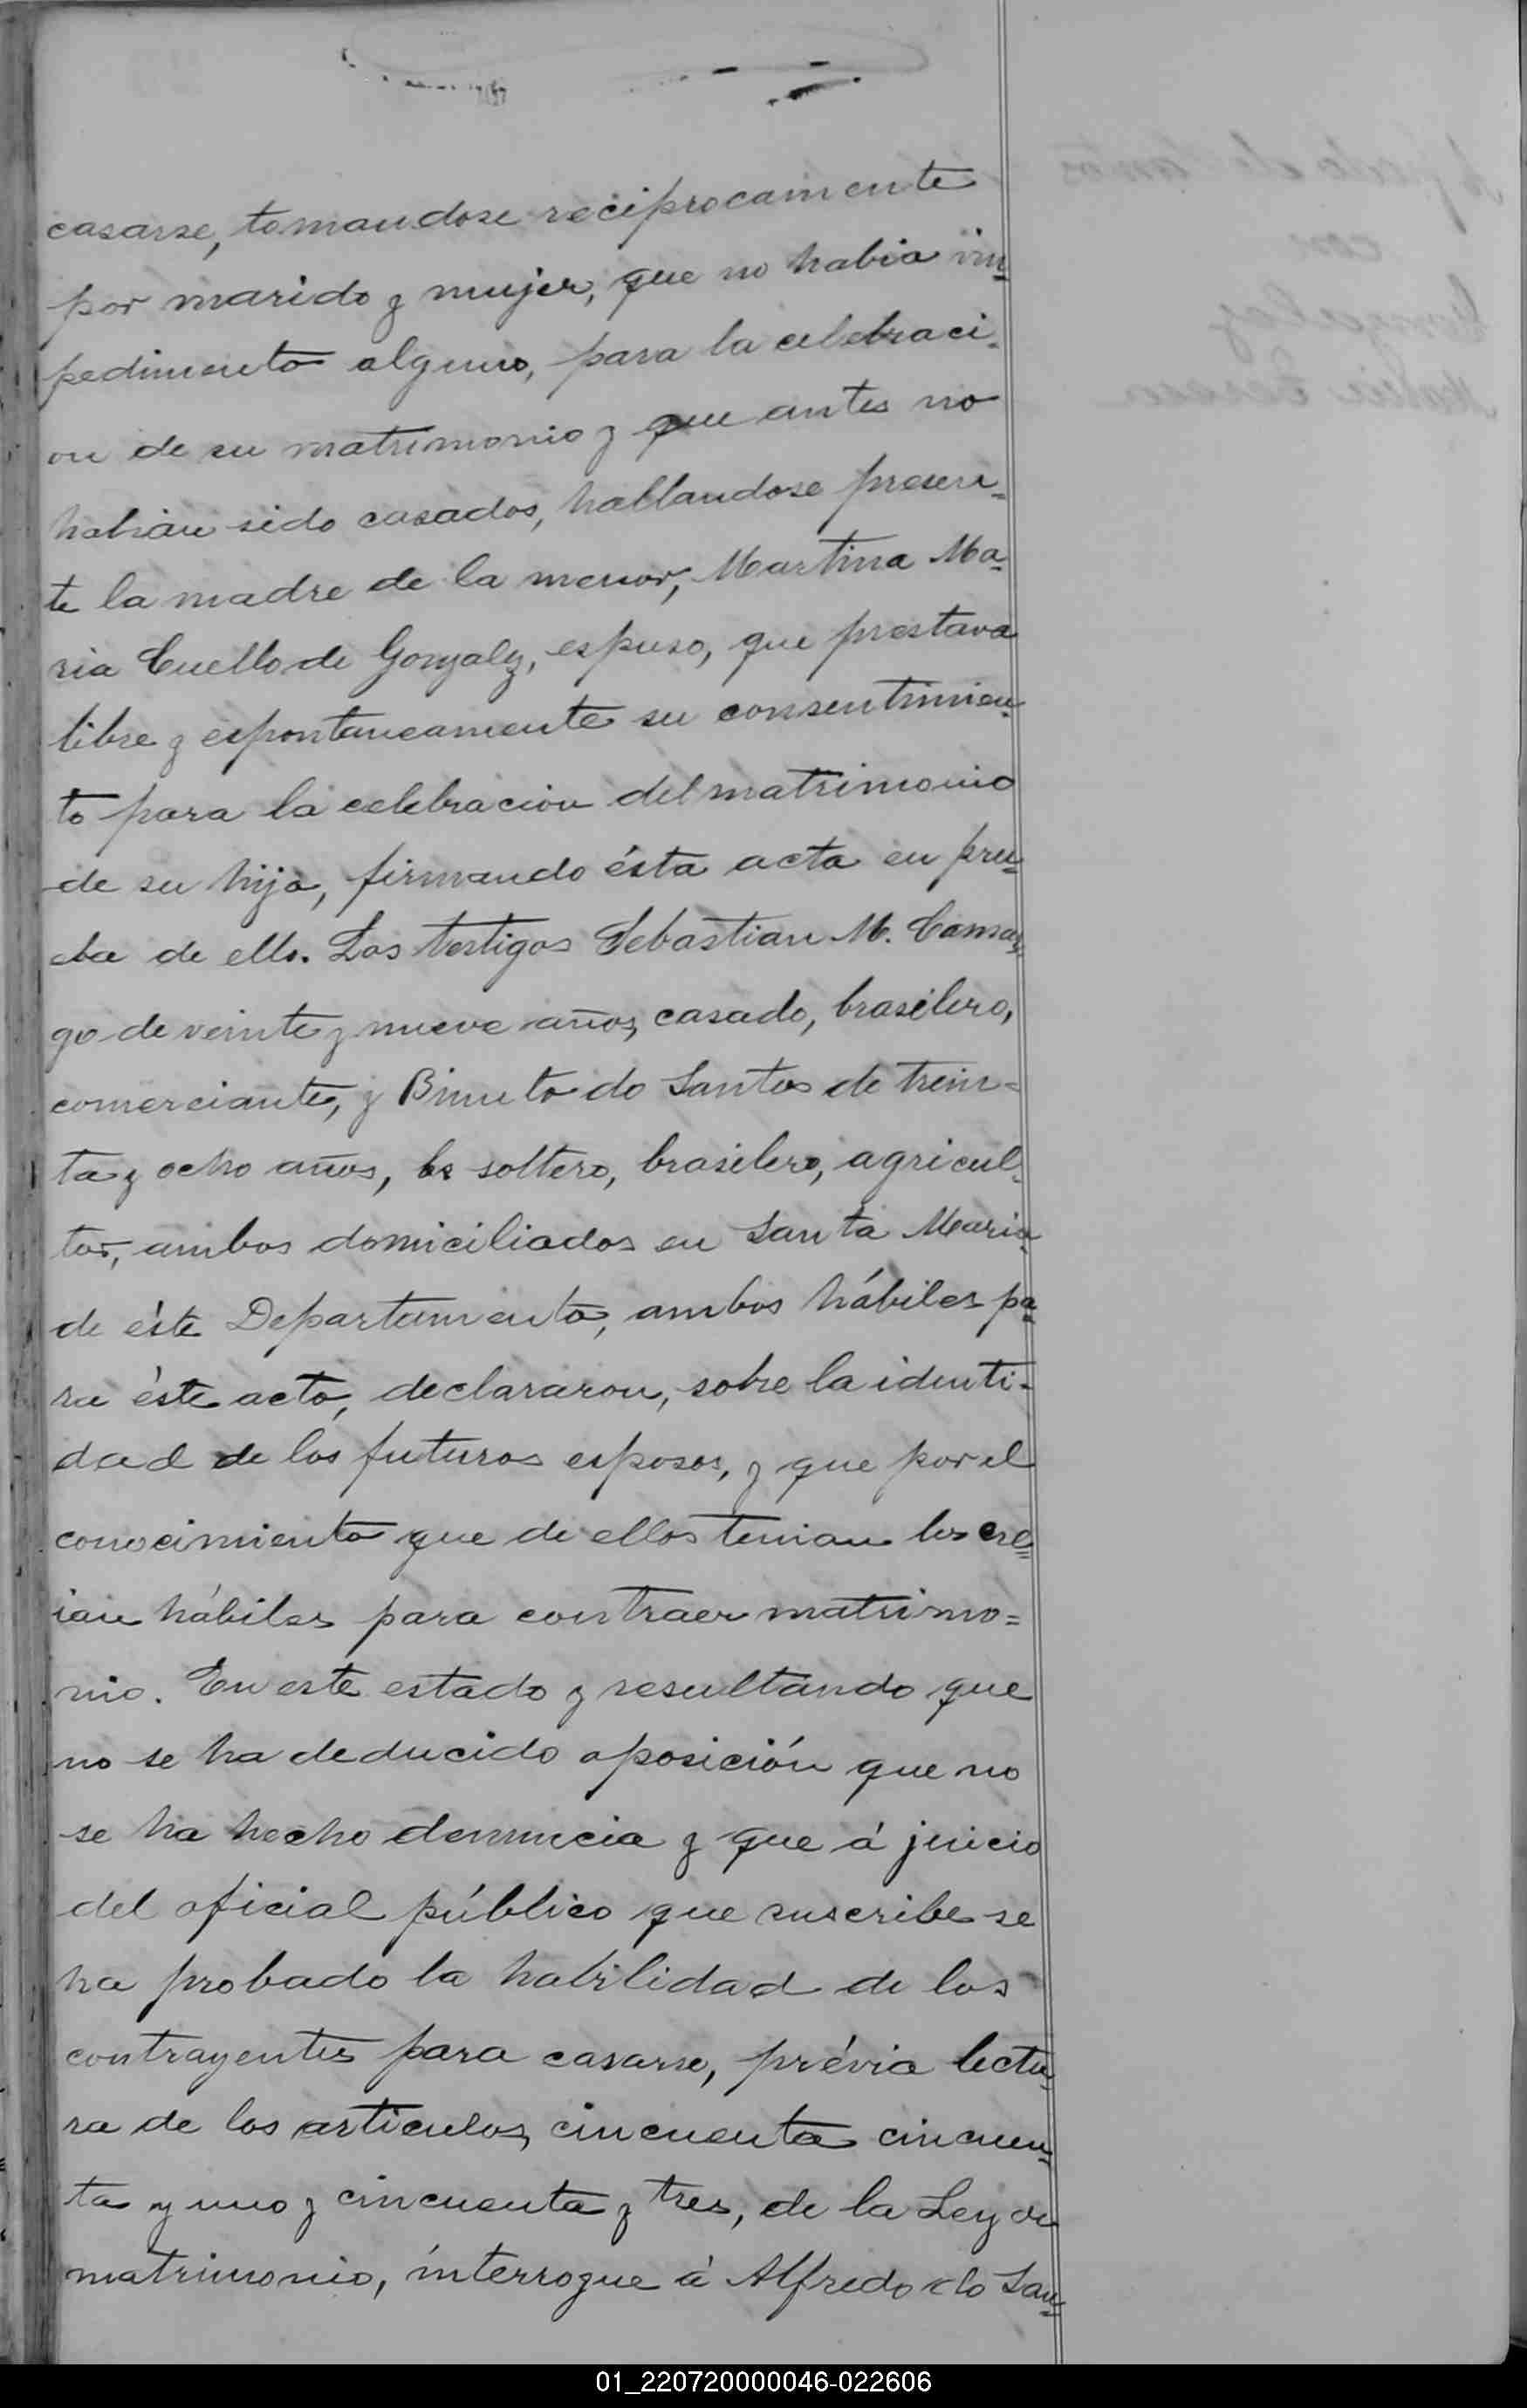 casarse, tomandose reciprocamente
por marido y mujer, que no habia im=
pedimento alguno, para la celebraci-
on de su matrimonio y que antes no
habian sido casados, hallandose presen=
te la madre de la menor, Martina Ma=
ria Cuello de Gonzalez, espuso, que prestava
libre y espontaneamente su consentimien=
to para la celebracion del matrimonio
de su hija, firmando ésta acta en prue=
ba de ello. Los testigos Sebastian M. Camar=
go de veinte y nueve años, casado, brasilero,
comerciante, y do Santos de trein=
ta y ocho años, soltero, brasilero, agricul=
tor, ambos domiciliados en Santa Maria
de éste Departamento, ambos hábiles pa=
ra éste acto, declararon, sobre la identi-
dad de los futuros esposos, y que por el
conocimiento que de ellos tenian los cre=
ian hábiles para contraer matrimo=
nio. En este estado y resultando que
no se ha deducido oposición que no
se ha hecho denuncia y que á juicio
del oficial público que suscribe se
ha probado la habilidad de los
contrayentes para casarse, prévia lectu=
ra de los articulos, cincuenta cincuen=
ta y uno y cincuenta y tres, de la Ley de
matrimonio, interrogue á Alfredo do San=
01_220720000046-022606